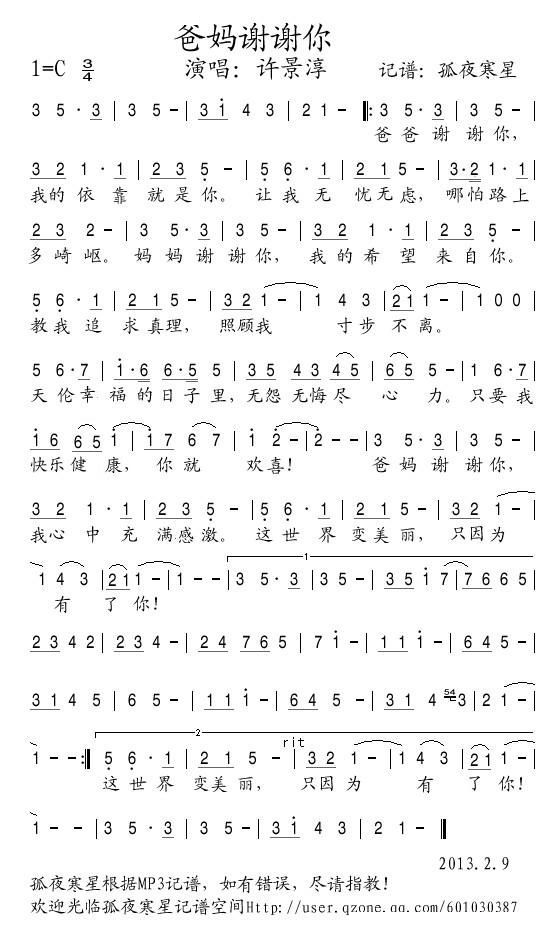 爸妈谢谢你
1=C 3/4 演唱：许景淳 记谱：孤夜寒星
3 5 · 3 | 3 5 - | 3 1 4 3 | 2 1 - ‖: 3 5 · 3 | 3 5 - |
爸爸谢谢你，
3 2 1 · 1 | 2 3 5 - | 5 6 · 1 | 2 1 5 - | 3 · 2 1 · 1 |
我的依靠就是你。让我无忧无虑，哪怕路上
2 3 2 - | 3 5 · 3 | 3 5 - | 3 2 1 · 1 | 2 3 5 - |
多崎岖。妈妈谢谢你，我的希望来自你。
5 6 · 1 | 2 1 5 - | 3 2 1 - | 1 4 3 | 2 1 1 - | 1 0 0 |
教我追求真理，照顾我寸步不离。
5 6 · 7 | 1 · 6 6 · 5 5 | 3 5 4 3 4 5 | 6 5 5 - | 1 6 · 7 |
天伦幸福的日子里，无怨无悔尽心力。只要我
1 6 6 5 1 | 1 7 6 7 | 1 2 - | 2 - - | 3 5 · 3 | 3 5 - |
快乐健康，你就欢喜！爸妈谢谢你，
3 2 1 · 1 | 2 3 5 - | 5 6 · 1 | 2 1 5 - | 3 2 1 - |
我心中充满感激。这世界变美丽，只因为
1
1 4 3 | 2 1 1 - | 1 - - | 3 5 · 3 | 3 5 - | 3 5 1 7 | 7 6 6 5 |
有了你！
2 3 4 2 | 2 3 4 - | 2 4 7 6 5 | 7 1 - | 1 1 1 - | 6 4 5 - |
3 1 4 5 | 6 5 - | 1 1 1 - | 6 4 5 - | 3 1 4 54 3 | 2 1 - |
2
rit
1 - - :‖ 5 6 · 1 | 2 1 5 - | 3 2 1 - | 1 4 3 | 2 1 1 - |
这世界变美丽，只因为有了你！
1 - - | 3 5 · 3 | 3 5 - | 3 1 4 3 | 2 1 - ‖
2013.2.9
孤夜寒星根据MP3记谱，如有错误，尽请指教！
欢迎光临孤夜寒星记谱空间Http://user.qzone.qq.com/601030387